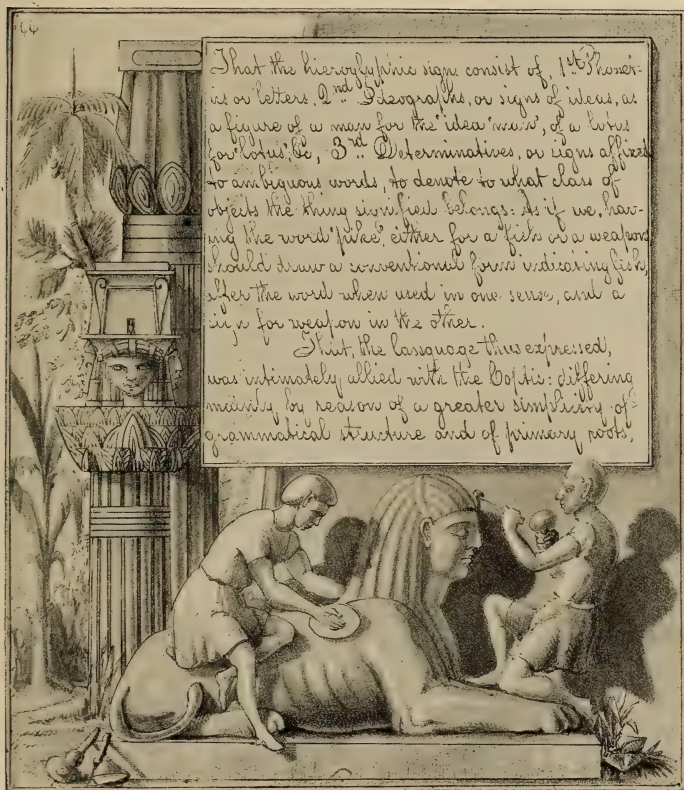 44
That the hieroglyphic signs consist of, 1st Phonet-
ics or letters. 2nd Ideographs, or signs of ideas, as
a figure of a man for the idea 'man', of a lotus
for 'lotus', &c, 3rd. Determinatives, or signs affixed
to ambiguous words, to denote to what class of
objects the thing signified belongs: As if we, hav-
ing the word 'pike', either for a fish or a weapon,
should draw a conventional form indicating fish,
after the word when used in one sense, and a
sign for weapon in the other.
That, the language thus expressed,
was intimately allied with the Coptic: differing
mainly by reason of a greater simplicity of
grammatical structure and of primary roots,